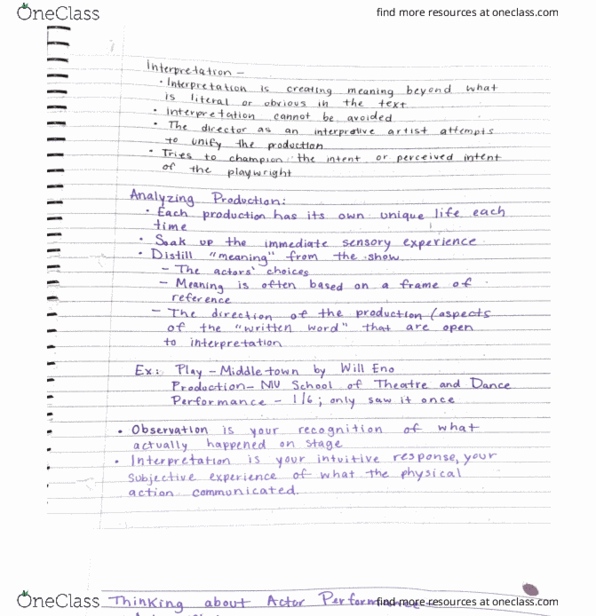 OneClass
find more resources at oneclass.com
Interpretation –
• Interpretation is creating meaning beyond what
is literal or obvious in the text
• Interpretation cannot be avoided
• The director as an interpretive artist attempts
to unify the production
• Tries to champion the intent or perceived intent
of the playwright
Analyzing Production:
• Each production has its own unique life each
time
• Soak up the immediate sensory experience
• Distill "meaning" from the show
– The actors' choices
– Meaning is often based on a frame of
reference
– The direction of the production (aspects
of the "written word" that are open
to interpretation
Ex: Play – Middletown by Will Eno
Production – NIU School of Theatre and Dance
Performance – 1/6; only saw it once
• Observation is your recognition of what
actually happened on stage
• Interpretation is your intuitive response, your
subjective experience of what the physical
action communicated.
OneClass
Thinking about Actor
find more resources at oneclass.com